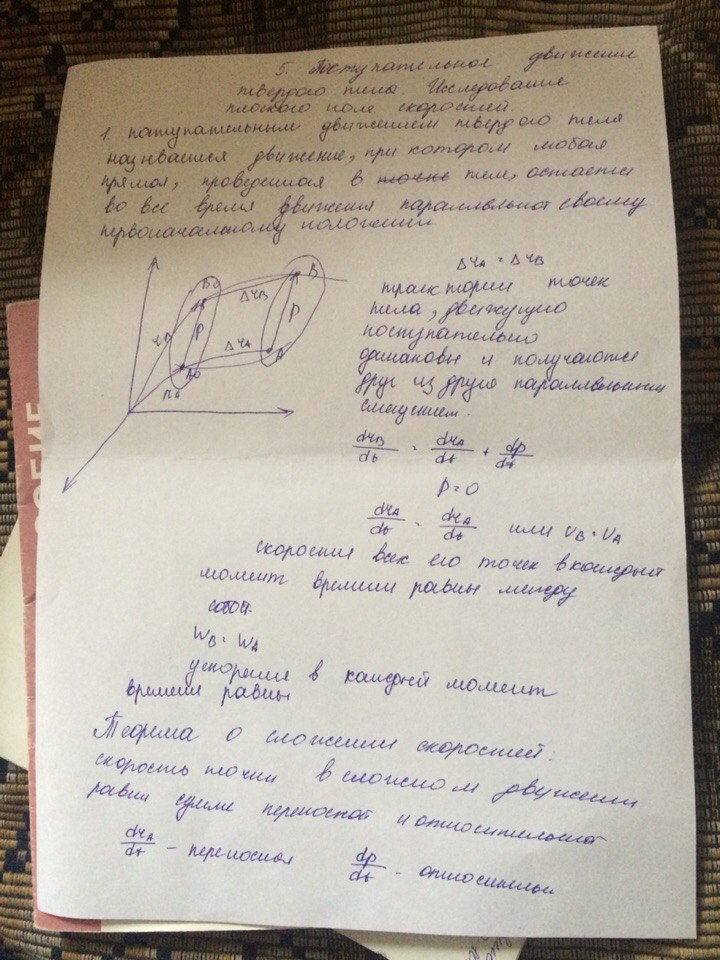 5. Поступательное движение
твердого тела. Исследование
плоского поля скоростей.
1. поступательным движением твердого тела
называется движение, при котором любая
прямая, проведенная в точке теле, остается
во все время движения параллельной своему
первоначальному положению
Δr_A = Δr_B
траектории точек
тела, движущегося
поступательно
одинаковы и получаются
друг из друга параллельным
смещением.
B₀ B
Δr_B
r_B P P
Δr_A
A₀ A
r_A
dr_B/dt = dr_A/dt + dp/dt
P = 0
dr_A/dt = dr_A/dt или v_B = v_A
скорости всех его точек в каждый
момент времени равны между
собой.
W_B = W_A
ускорения в каждый момент
времени равны
Теорема о сложении скоростей:
скорость точки в сложном движении
равна сумме переносной и относительной
dr_A/dt - переносная dp/dt - относительн
ОБИЕ